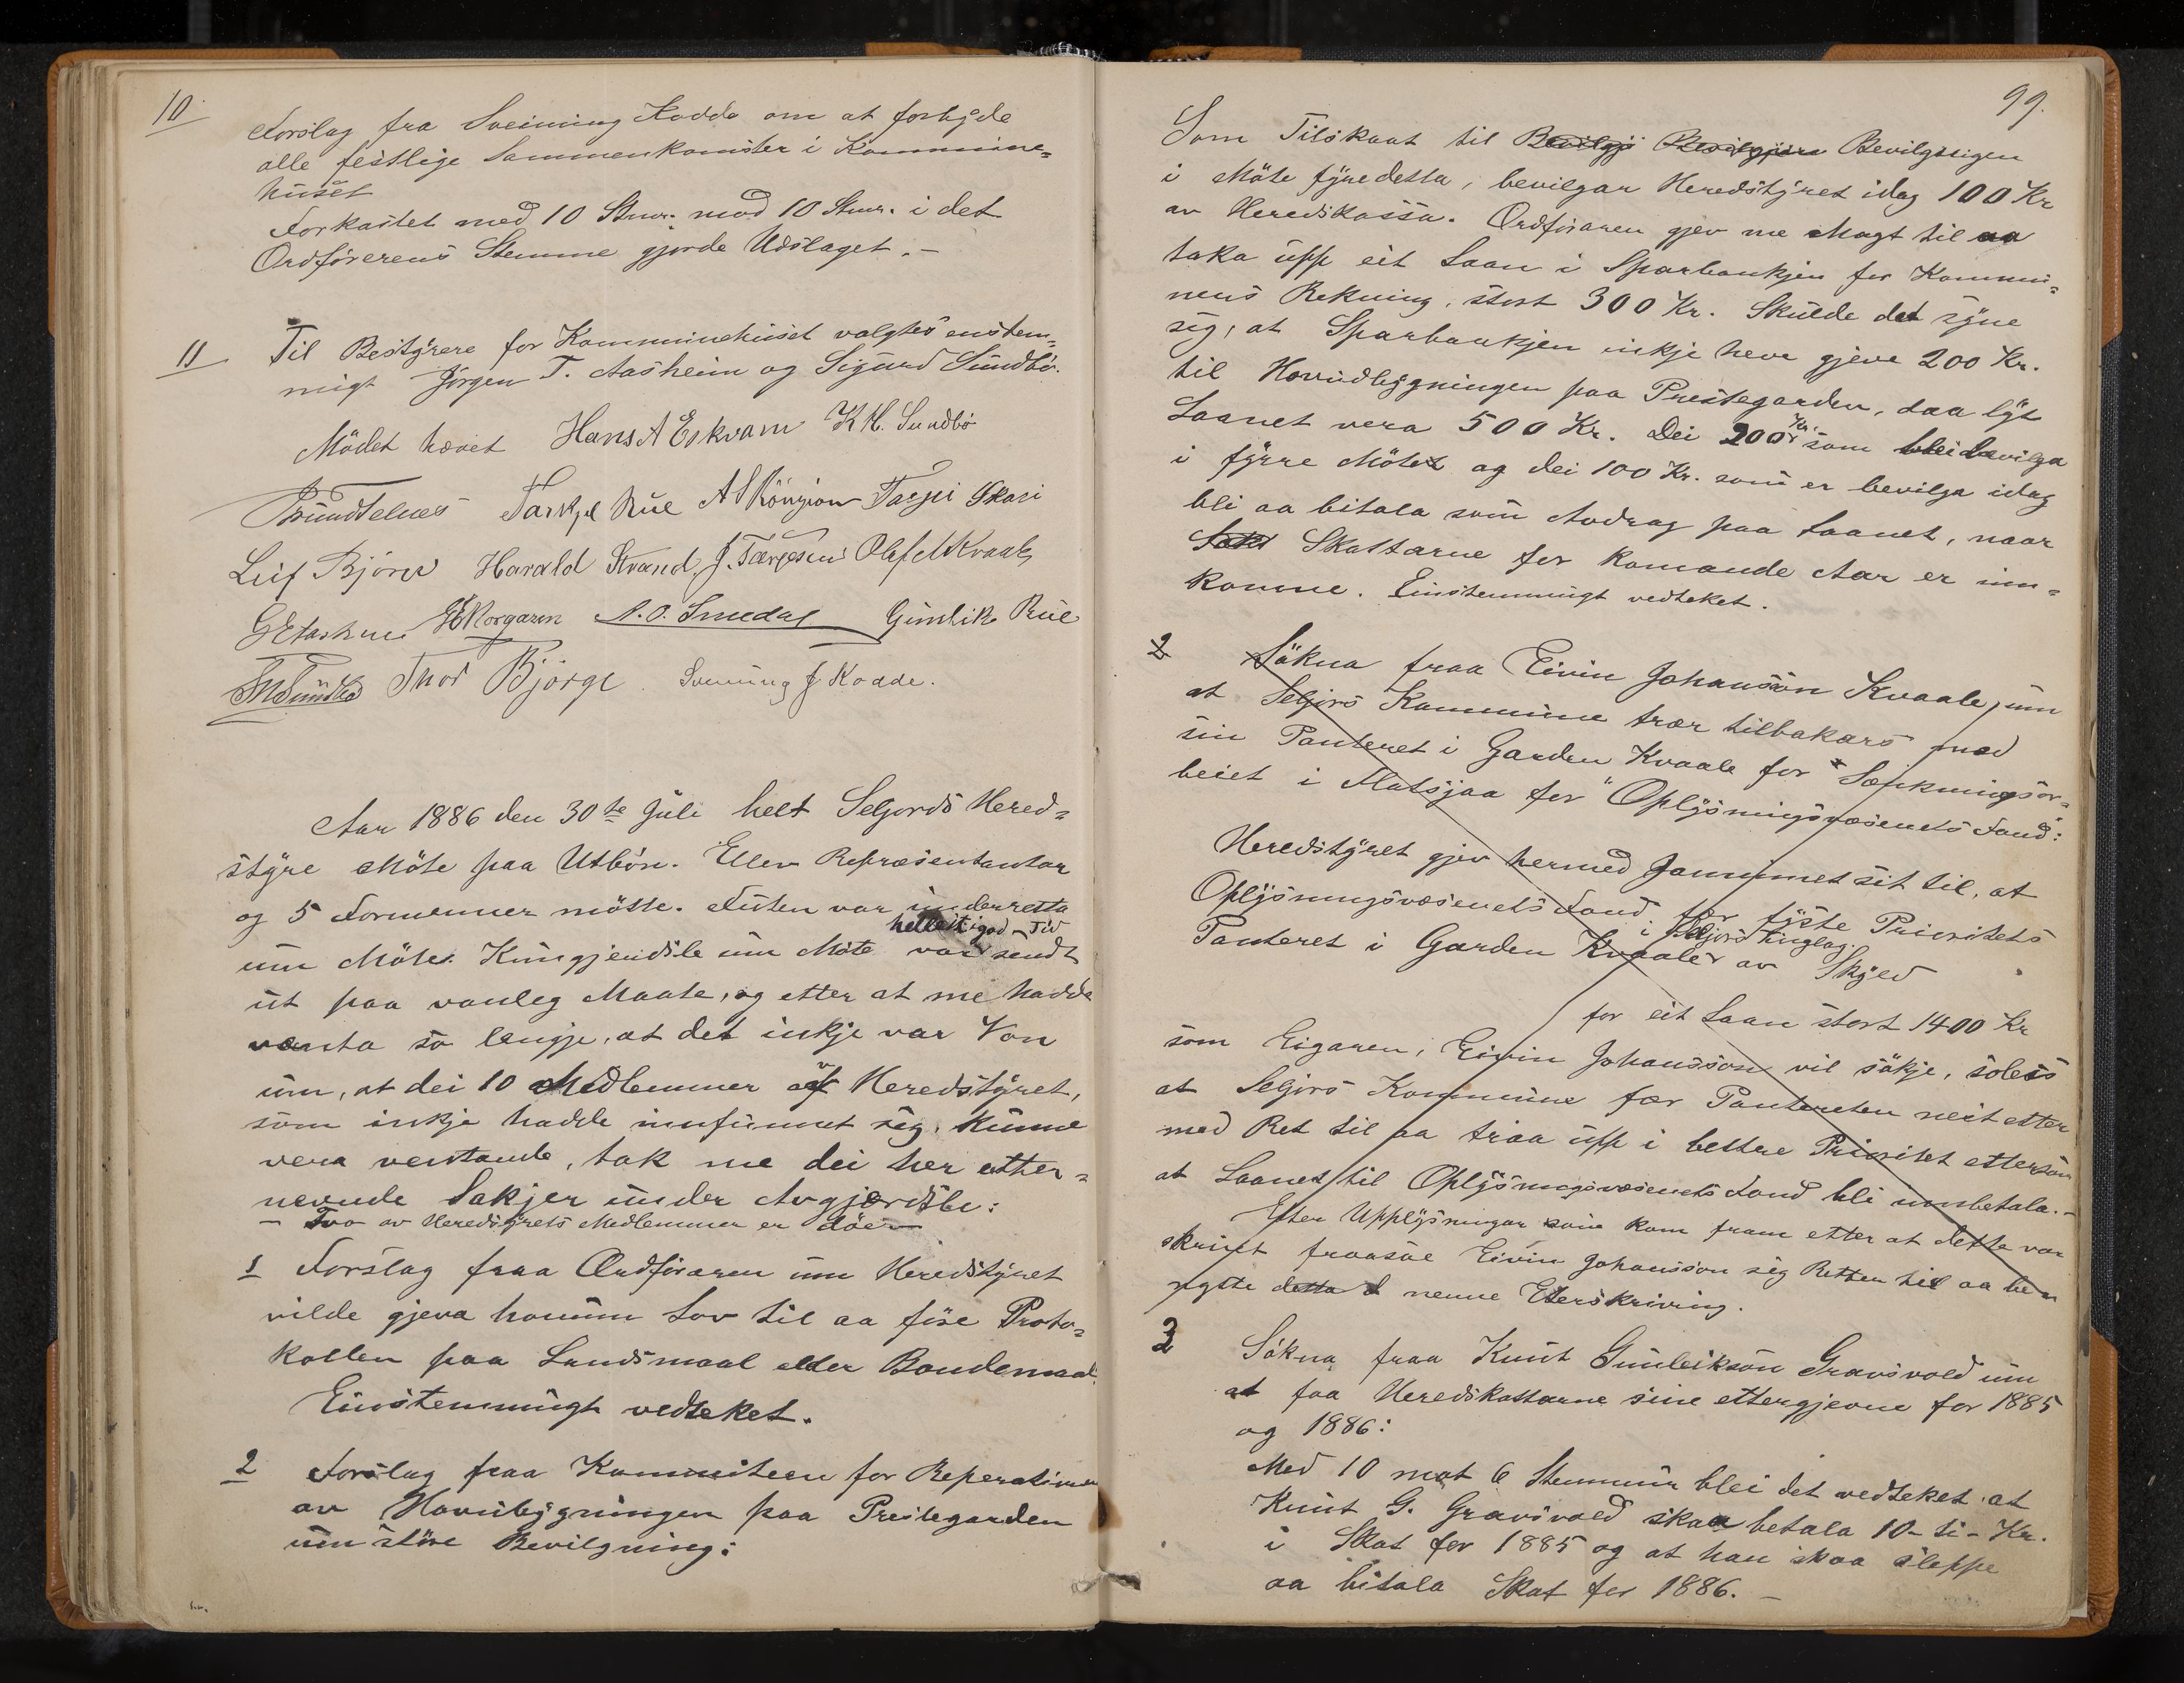 10.
Forslag fra Sveinung Kodda om at forbyde
alle festlige Sammenkomster i Kommüne=
hüset
Forkastet med 10 Stmr. mod 10 Stmr. i det
Ordförerens Stemme gjorde Udslaget. –
11 Til Bestÿrere for Kommünehüset valgtes enstem=
migt Jörgen T. Aasheim og Sigürd Sündbö.
Mödet hævet Hans A Eskvam K H. Sundbö
Tarkjel Rüe Targei Skori
Leif Björge Harald Strand. Olaf M Kvaale
A. O. Smedal Günlik Rüe
Thor Björge Sveinung J Kodde.
Aar 1886 den 30te Jüli helt Seljords Hered=
stÿre Möte paa Utbön. Ellev Repræsentantar
og 5 Formenner mötte. Füten var ünderretta
helleit i god Tid
üm Möte. Küngjendsle üm Möte var sendt
üt paa vanleg Maate, og etter at me hadde
venta so lengje, at det inkje var Von
üm, at dei 10 Medlemmer av Heredstÿret,
som inkje hadde innfünnet seg, künne
vera ventande, tok me dei her etter=
nevnde Sakjer ünder Avgjærdsle:
– Tvo av Heredstÿrets Medlemmer er döer –
1 Forslag fraa Ordföraren üm Heredstÿret
vilde gjeva honüm Lov til aa före Proto=
kollen paa Landsmaal elder Bondemaal.
Einstemmigt vedteket.
2 Forslag fraa Kommiteen for Reperationen
av Hovübÿgningen paa Prestegarden
üm störe Bevilgning:
99.
Som Tilskaat til Bevilgji Bevilgjüra Bevilgningen
i Möte fÿre detta, bevilgar Heredstÿret idag 100 Kr
av Heredskassa. Ordföraren gjev me Magt til aa
taka üpp eit Laan i Sparbankjen for Kommü=
nens Rekning, stort 300 Kr. Skülde det sÿne
seg, at Sparbankjen inkje heve gjeve 200 Kr.
til Hovüdbÿgningen paa Prestegarden, daa lÿt
Laanet vera 500 Kr. Dei 200 Kr. som blei bevilga
i fÿrre Möte og dei 100 Kr. som er bevilga idag
bli aa bitala som Avdrag paa Laanet, naar
Skattarne for komande Aar er inn=
komne. Einstemmigt vedteket.
2 Sökna fraa Eivin Johansson Kvaale, üm
at Seljors Kommüne trær tilbakars med
sin Panteret i Garden Kvaale for Sænkningsar=
beiet i Flatsjaa for "Oplÿsningsvæsenets Fond":
Heredstÿret gjev hermed Jammnet sit til, at
Oplÿsningsvæsenets Fond fær fÿste Prioritets
i Seljord Tinglag.
Panteret i Garden Kvaale av Skÿld
for eit Laan stort 1400 Kr
som Eigaren, Eivin Johansson vil sökje, soleis
at Seljors Kommüne fær Panteretten nest etter
med Ret til aa triaa üpp i bettre Prioritet ettersom
at Laanet til Oplÿsningsvæsenets Fond bli nedbetala. –
Etter Upplÿsningar som kom fram etter at dette var
skrivet fraasae Eivin Johansson seg Retten til aa be=
nÿtte detta nenne Eterskriving.
3 Sökna fraa Knüt Günleikson Gravsvold üm
at faa Heredskattarne sine ettergjevne for 1885
og 1886:
Med 10 mot 6 Stemmür blei det vedteket at
Knüt G. Gravsvold skaa betala 10 – ti – Kr.
i Skat for 1885 og at han skaa sleppe
aa bitala Skat for 1886. –